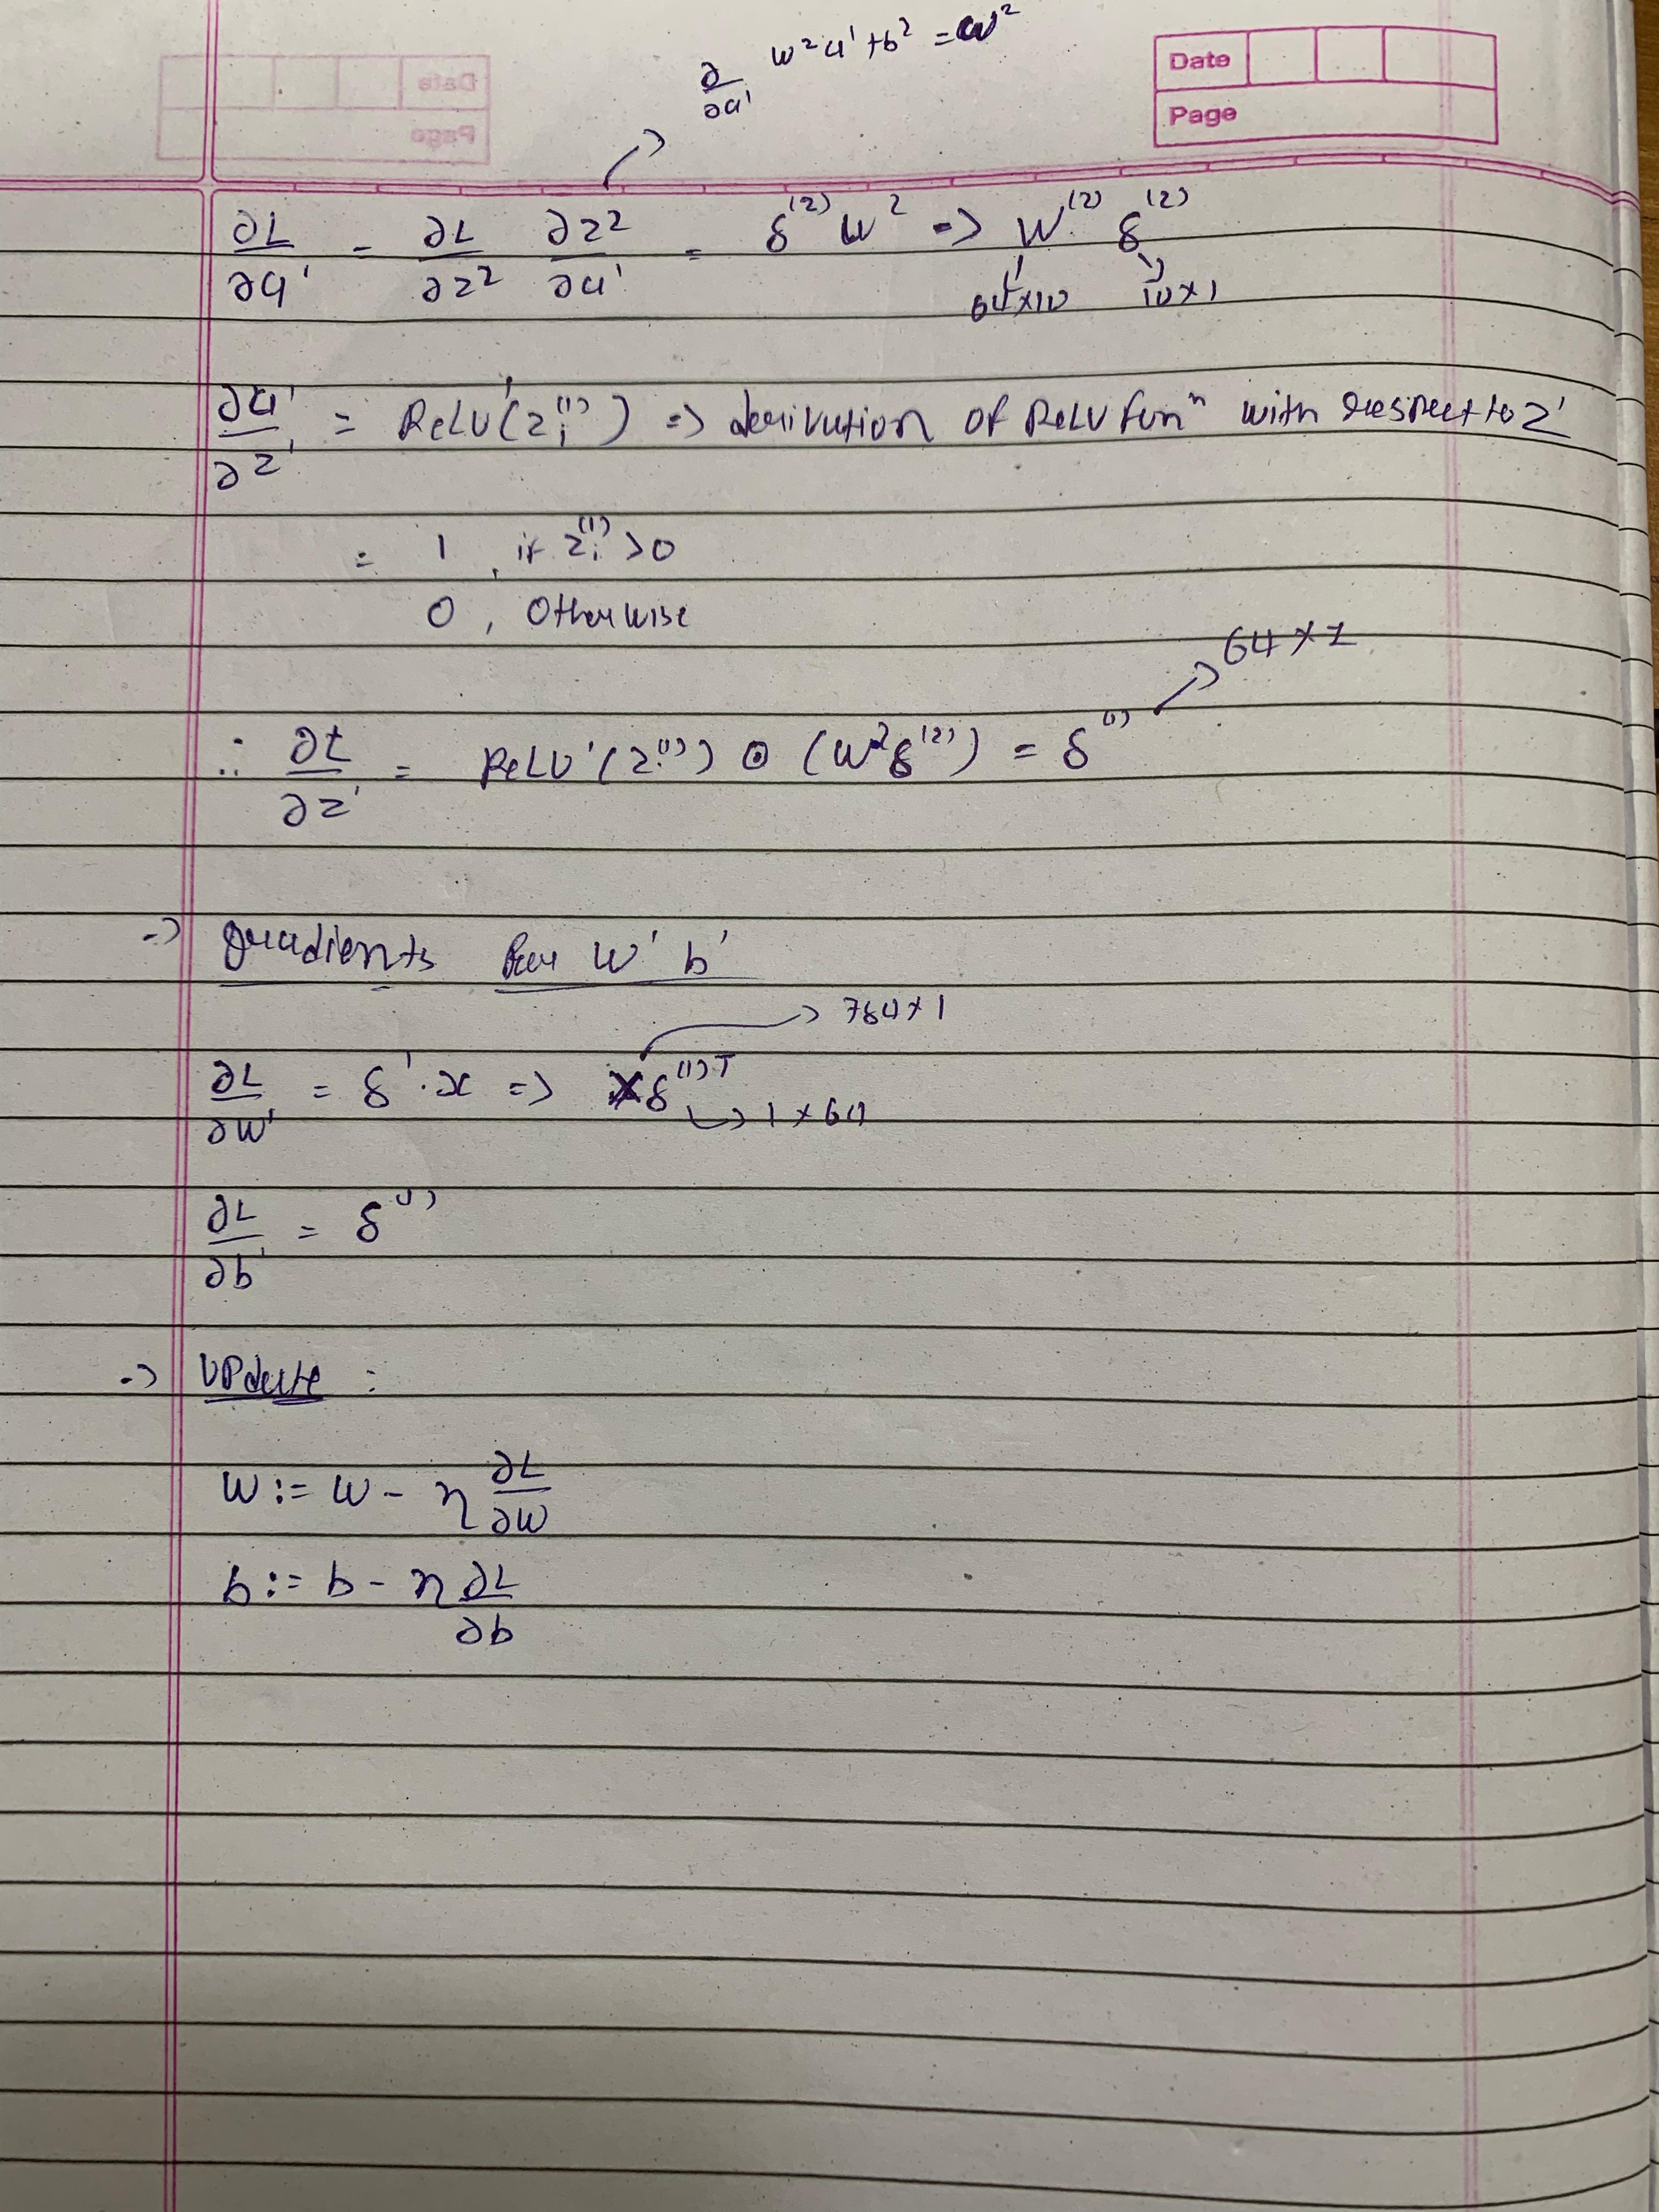 ∂/∂a¹ w²a¹+b² = w²
Date
Page
∂L/∂a¹ = ∂L/∂z² ∂z²/∂a¹ = δ⁽²⁾ W² => W⁽²⁾ δ⁽²⁾
64×10 10×1
∂a¹/∂z¹ = ReLU'(zᵢ⁽¹⁾) => derivation of ReLU funⁿ with respect to z¹
= 1 , if zᵢ⁽¹⁾ >0
0 , Otherwise
64×1
∴ ∂L/∂z¹ = ReLU'(z⁽¹⁾) ⊙ (W²δ⁽²⁾) = δ⁽¹⁾
=> gradients for W¹ b¹
784×1
∂L/∂W¹ = δ¹.x => Xδ⁽¹⁾ᵀ
1×64
∂L/∂b¹ = δ⁽¹⁾
=> Update :
W := W - η ∂L/∂W
b := b - η ∂L/∂b